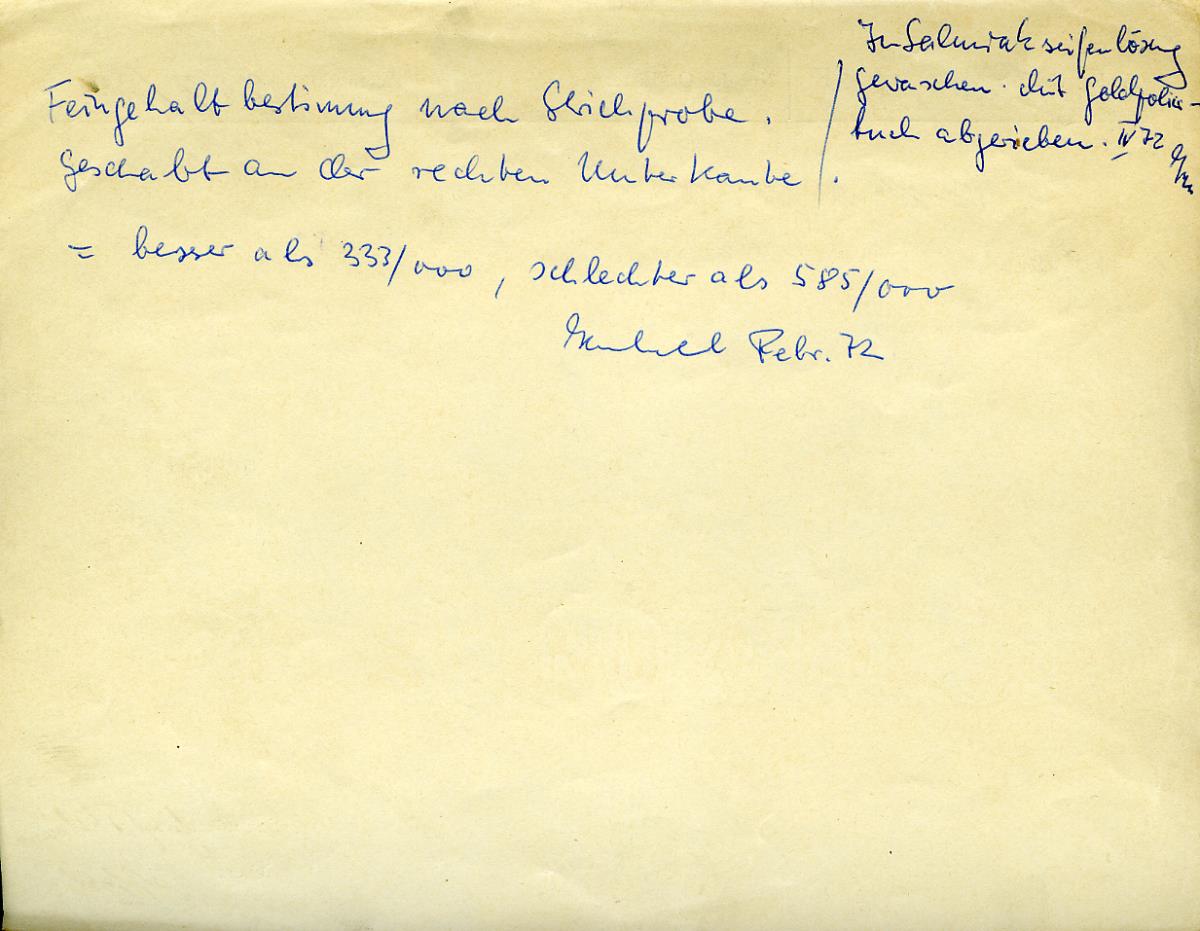 Feingehaltbestimmung nach Strichprobe.
Geschabt an der rechten Unterkante.
= besser als 333/000, schlechter als 585/000
Febr. 72
In Salmiakseifenlösung
gewaschen. Mit Goldpolier-
tuch abgerieben. IV 72